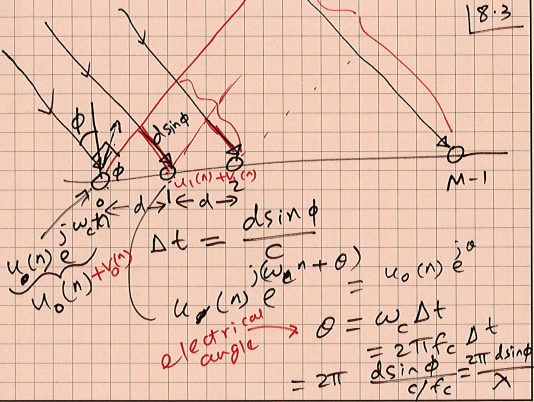 8.3
ϕ
d sinϕ
ϕ
0 1 2
u₁(n)+v₁(n)
M-1
←d→ ←d→
u₀(n) e^{jω_c n}
u₀(n)+v₀(n)
Δt = d sinϕ / c
u₀(n) e^{j(ω_c n + θ)} = u₀(n) e^{jθ}
electrical angle → θ = ω_c Δt
= 2πf_c Δt
= 2π d sinϕ / c/f_c = 2π d sinϕ / λ